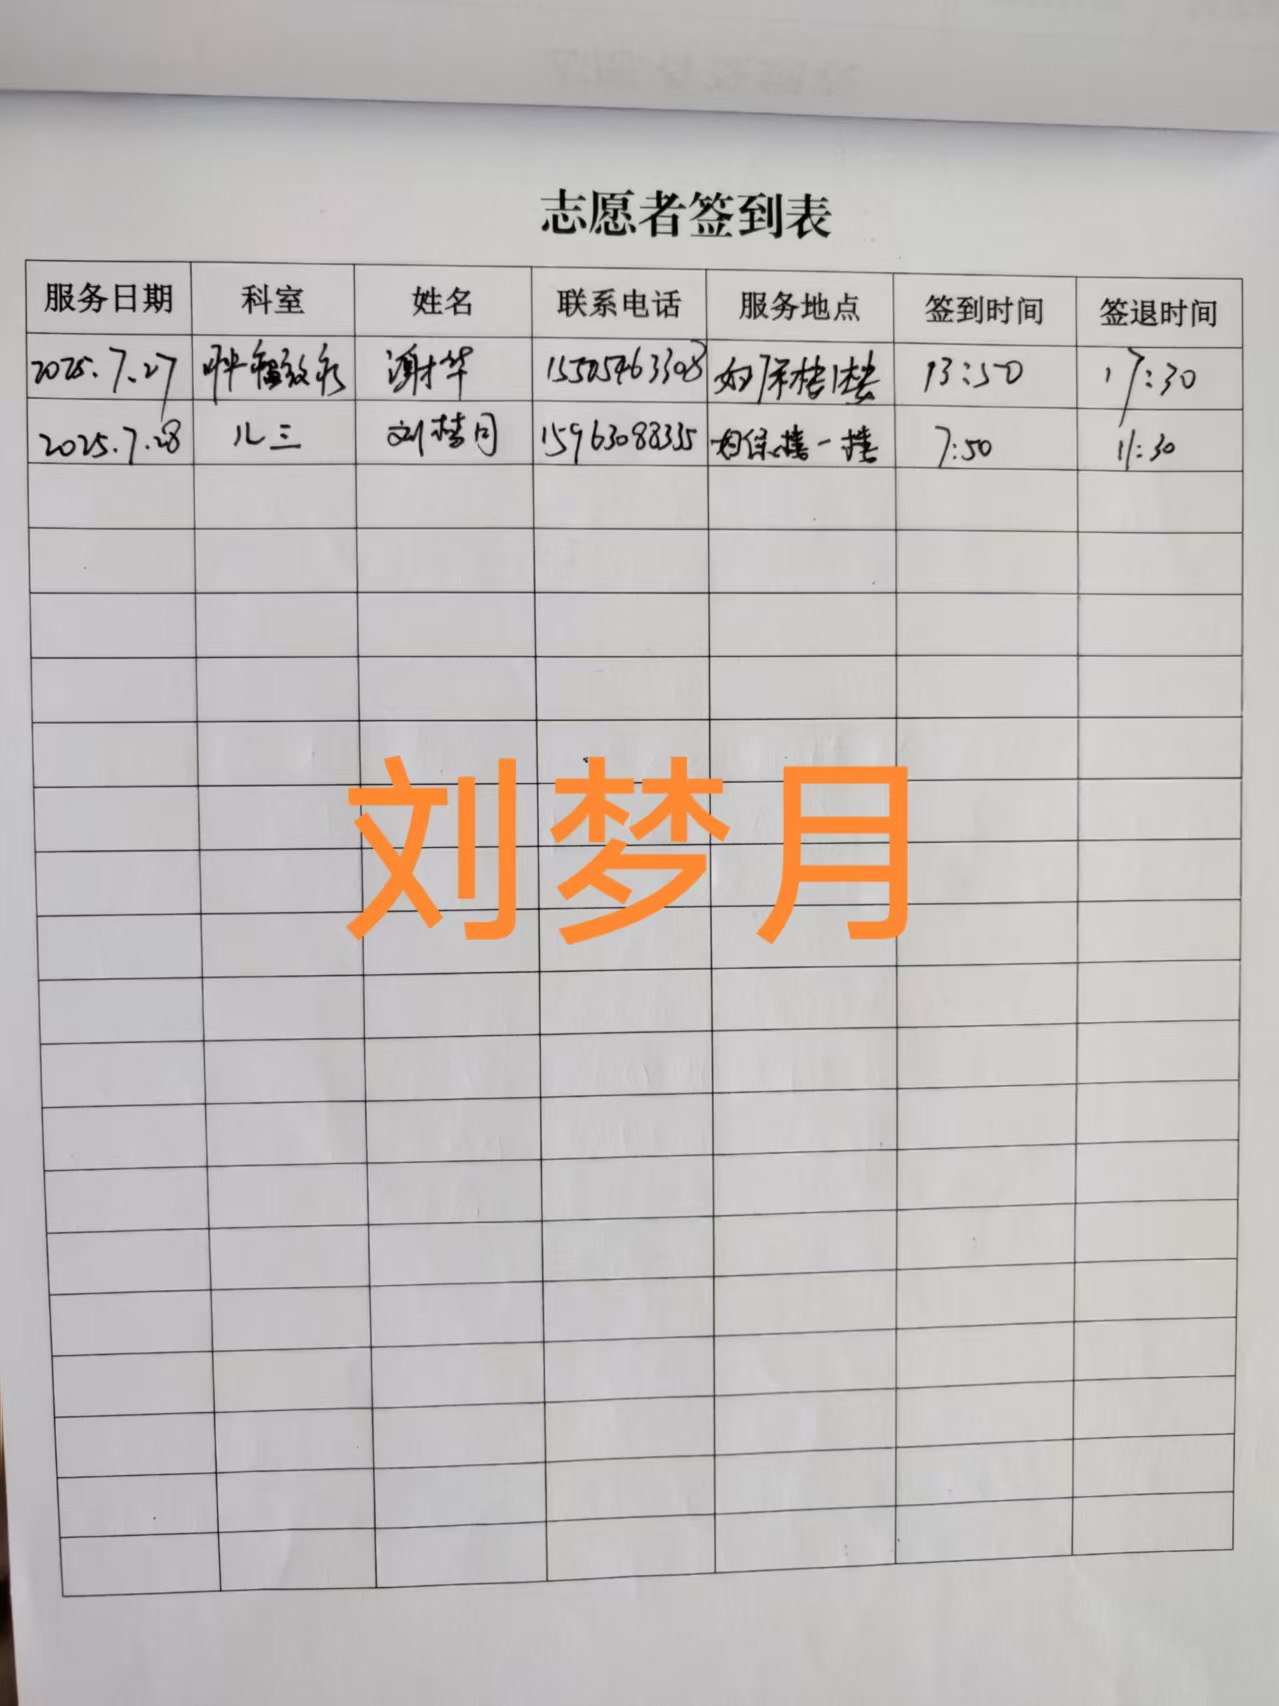 志愿者签到表
服务日期 科室 姓名 联系电话 服务地点 签到时间 签退时间
2025.7.27 谢才华 15505463308 妇保楼1楼 13:50 17:30
2025.7.28 儿三 刘梦月 15963088335 妇保楼一楼 7:50 11:30
刘梦月